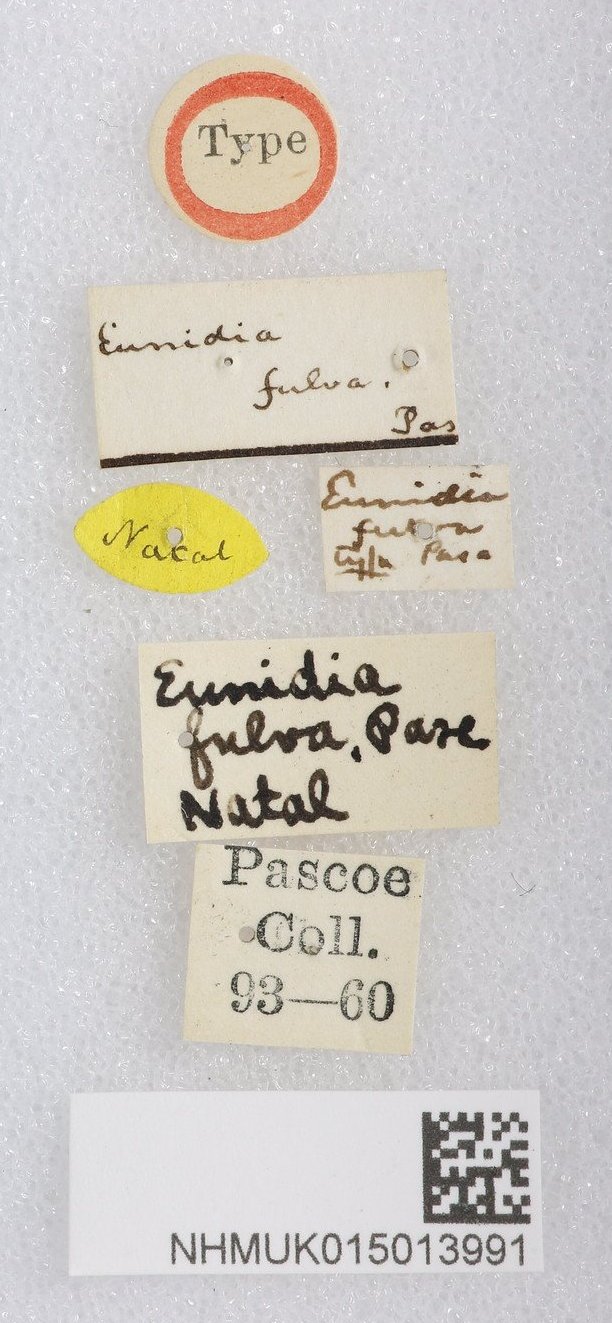 Type
Eunidia
fulva.
Pas
Natal
Eunidia
fulva
type Pasc
Eunidia
fulva, Pasc
Natal
Pascoe
Coll.
93—60
NHMUK015013991